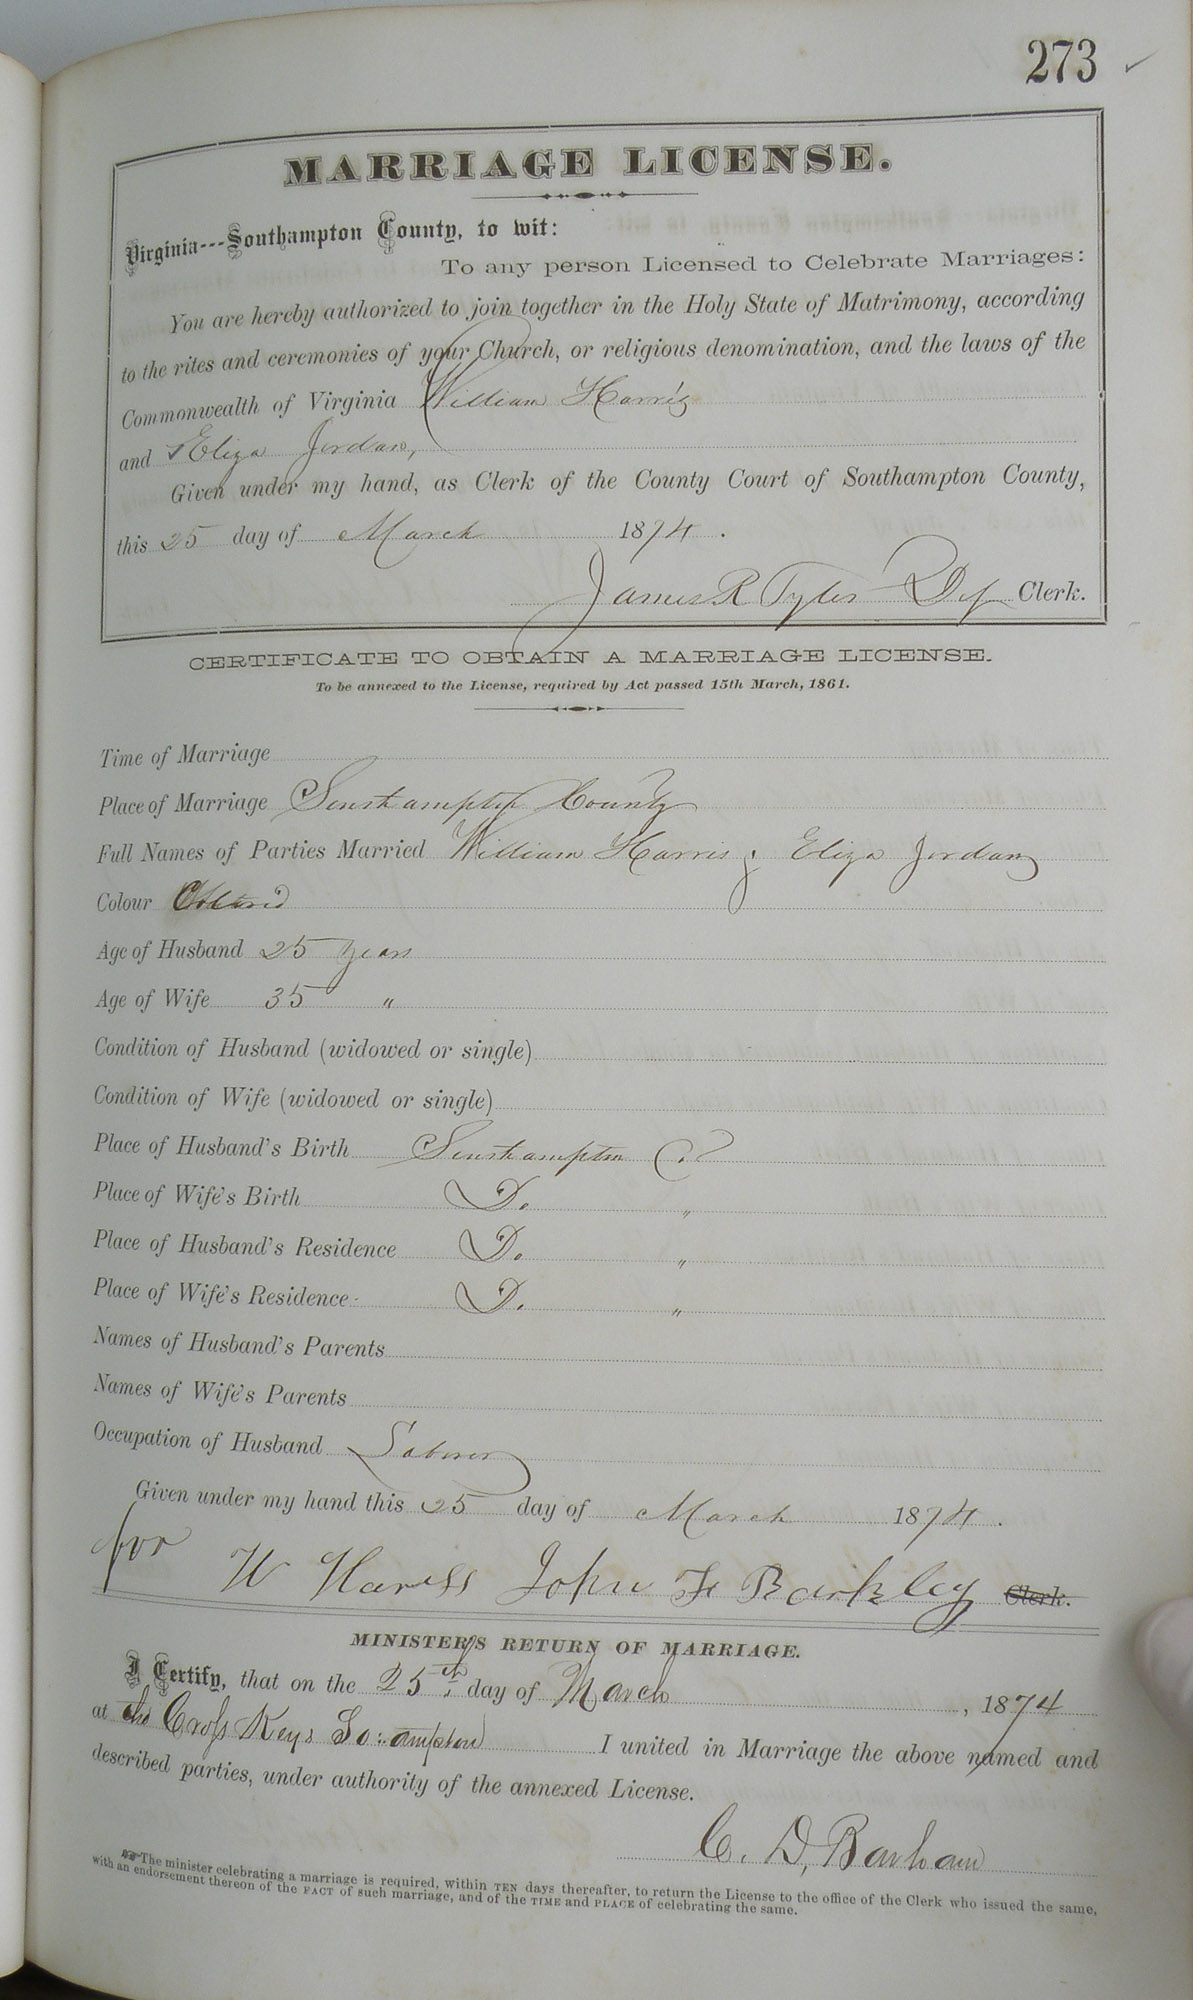 273
MARRIAGE LICENSE.
Virginia---Southampton County, to wit:
To any person Licensed to Celebrate Marriages:
You are hereby authorized to join together in the Holy State of Matrimony, according
to the rites and ceremonies of your Church, or religious denomination, and the laws of the
Commonwealth of Virginia William Harris
and Eliza Jordan,
Given under my hand, as Clerk of the County Court of Southampton County,
this 25 day of March 1874.
James R Tyler Dep Clerk.
CERTIFICATE TO OBTAIN A MARRIAGE LICENSE.
To be annexed to the License, required by Act passed 15th March, 1861.
Time of Marriage
Place of Marriage Southampton County
Full Names of Parties Married William Harris; Eliza Jordan
Colour Colored
Age of Husband 25 years
Age of Wife 35 "
Condition of Husband (widowed or single)
Condition of Wife (widowed or single)
Place of Husband's Birth Southampton Co
Place of Wife's Birth Do "
Place of Husband's Residence Do "
Place of Wife's Residence Do "
Names of Husband's Parents
Names of Wife's Parents
Occupation of Husband Laborer
Given under my hand this 25 day of March 1874.
for W Harris John F Barkley Clerk.
MINISTER'S RETURN OF MARRIAGE.
I Certify, that on the 25th day of March, 1874
at the Cross Keys So:ampton I united in Marriage the above named and
described parties, under authority of the annexed License.
C. D. Barham
☞The minister celebrating a marriage is required, within TEN days thereafter, to return the License to the office of the Clerk who issued the same,
with an endorsement thereon of the FACT of such marriage, and of the TIME and PLACE of celebrating the same.